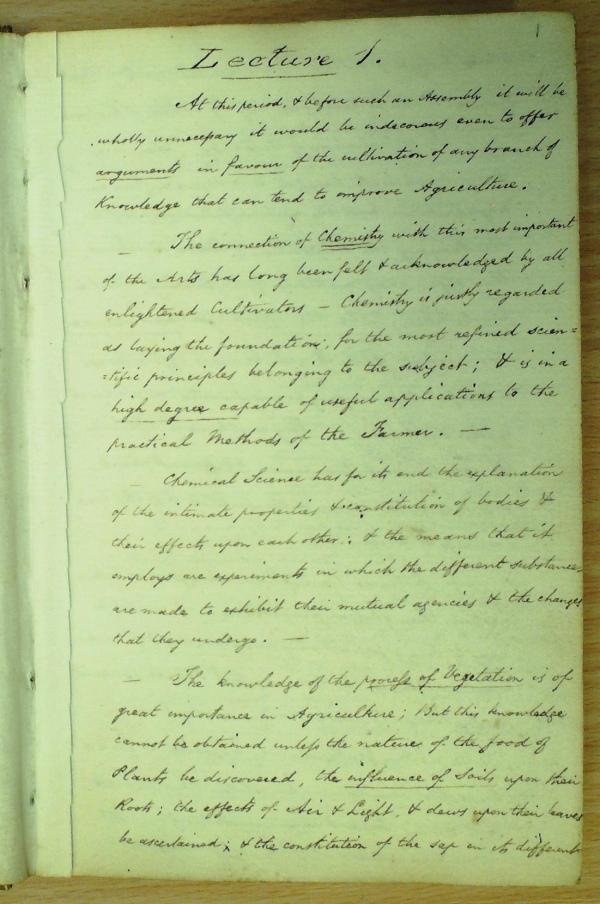 1
Lecture 1.
At this period, & before such an Assembly it will be
wholly unnecessary it would be indecorous even to offer
arguments in favour of the cultivation of any branch of
Knowledge that can tend to improve Agriculture.
— The connection of Chemistry with this most important
of the Arts has long been felt & acknowledged by all
enlightened Cultivators — Chemistry is justly regarded
as laying the foundation, for the most refined scien=
=tific principles belonging to the subject; & is in a
high degree capable of useful applications to the
practical Methods of the Farmer. —
— Chemical Science has for its end the explanation
of the intimate properties & constitution of bodies &
their effects upon each other: & the means that it
employs are experiments in which the different substances
are made to exhibit their mutual agencies & the changes
that they undergo. —
— The knowledge of the process of Vegetation is of
great importance in Agriculture; But this knowledge
cannot be obtained unless the nature of the food of
Plants be discovered, the influence of Soils upon their
Roots; the effects of Air & Light, & dews upon their leaves
be ascertained; & the constitution of the sap in its different